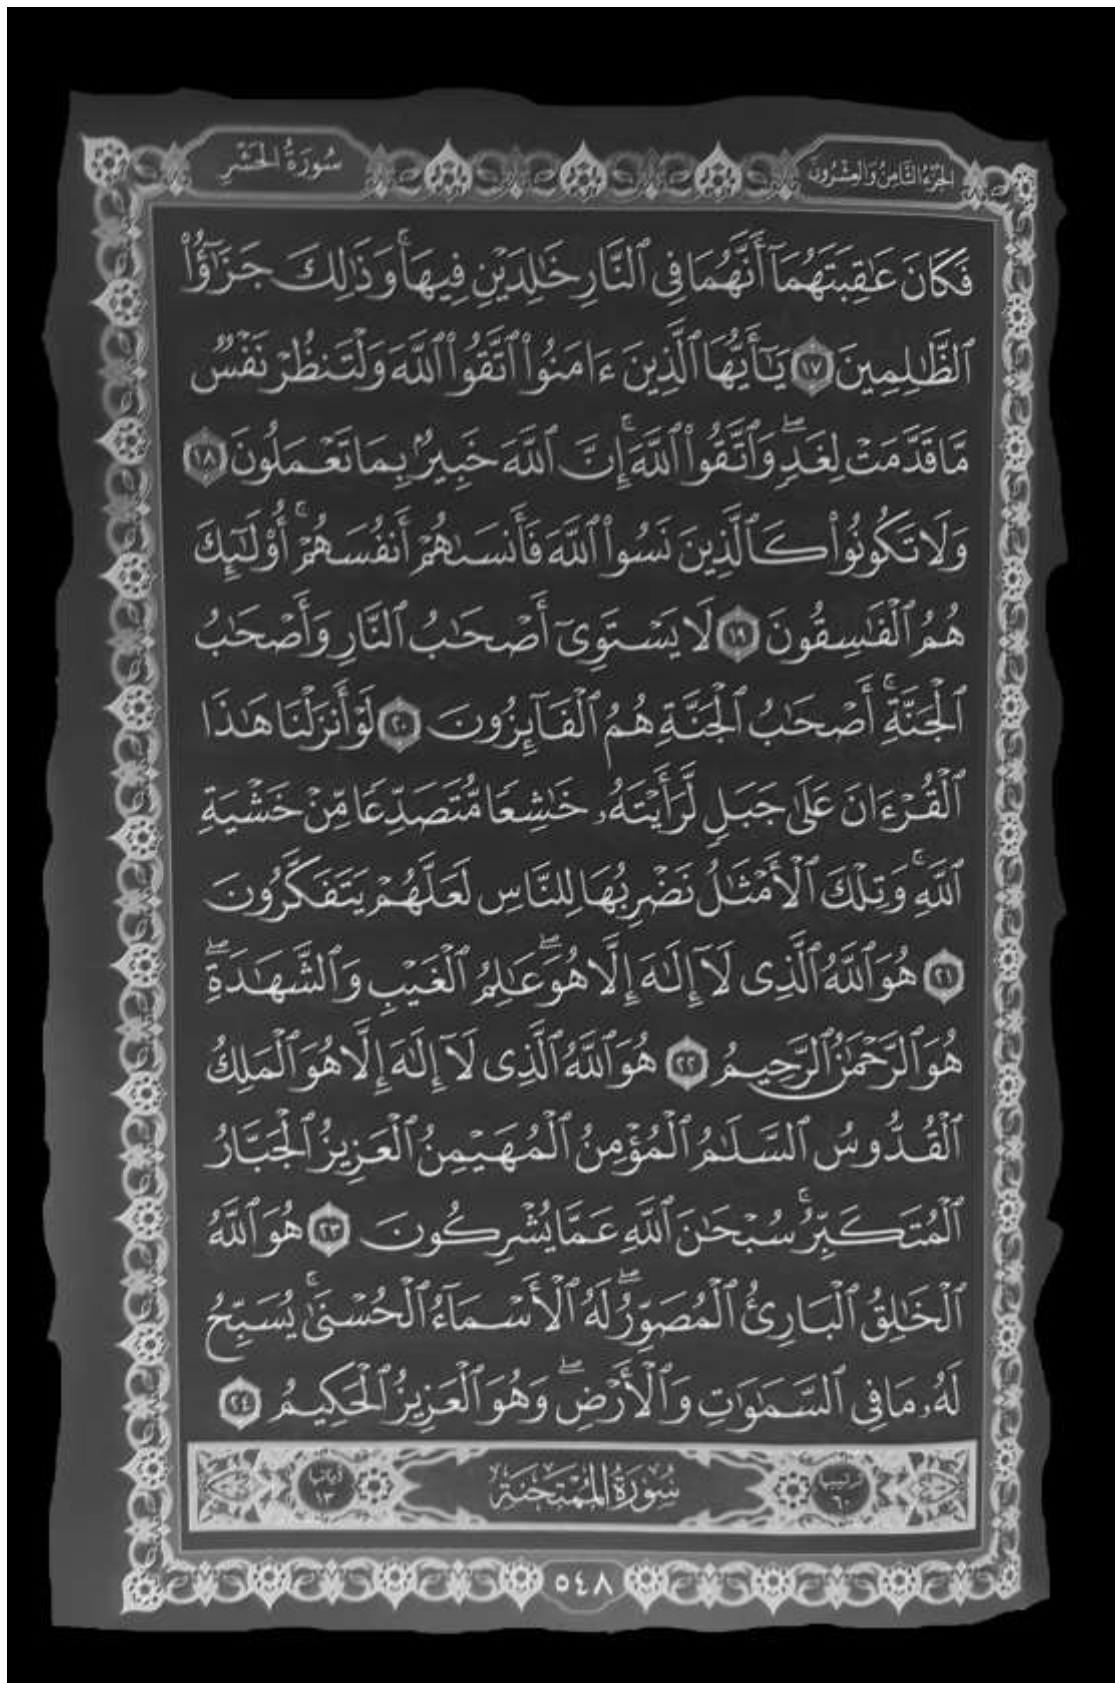 الجزء الثامن والعشرون
سورة الحشر
فَكَانَ عَـٰقِبَتَهُمَآ أَنَّهُمَا فِى ٱلنَّارِ خَـٰلِدَيْنِ فِيهَا ۚ وَذَٰلِكَ جَزَٰٓؤُا۟
ٱلظَّـٰلِمِينَ ١٧ يَـٰٓأَيُّهَا ٱلَّذِينَ ءَامَنُوا۟ ٱتَّقُوا۟ ٱللَّهَ وَلْتَنظُرْ نَفْسٌ
مَّا قَدَّمَتْ لِغَدٍ ۖ وَٱتَّقُوا۟ ٱللَّهَ ۚ إِنَّ ٱللَّهَ خَبِيرٌۢ بِمَا تَعْمَلُونَ ١٨
وَلَا تَكُونُوا۟ كَٱلَّذِينَ نَسُوا۟ ٱللَّهَ فَأَنسَىٰهُمْ أَنفُسَهُمْ ۚ أُو۟لَـٰٓئِكَ
هُمُ ٱلْفَـٰسِقُونَ ١٩ لَا يَسْتَوِىٓ أَصْحَـٰبُ ٱلنَّارِ وَأَصْحَـٰبُ
ٱلْجَنَّةِ ۚ أَصْحَـٰبُ ٱلْجَنَّةِ هُمُ ٱلْفَآئِزُونَ ٢٠ لَوْ أَنزَلْنَا هَـٰذَا
ٱلْقُرْءَانَ عَلَىٰ جَبَلٍ لَّرَأَيْتَهُۥ خَـٰشِعًا مُّتَصَدِّعًا مِّنْ خَشْيَةِ
ٱللَّهِ ۚ وَتِلْكَ ٱلْأَمْثَـٰلُ نَضْرِبُهَا لِلنَّاسِ لَعَلَّهُمْ يَتَفَكَّرُونَ
٢١ هُوَ ٱللَّهُ ٱلَّذِى لَآ إِلَـٰهَ إِلَّا هُوَ ۖ عَـٰلِمُ ٱلْغَيْبِ وَٱلشَّهَـٰدَةِ ۖ
هُوَ ٱلرَّحْمَـٰنُ ٱلرَّحِيمُ ٢٢ هُوَ ٱللَّهُ ٱلَّذِى لَآ إِلَـٰهَ إِلَّا هُوَ ٱلْمَلِكُ
ٱلْقُدُّوسُ ٱلسَّلَـٰمُ ٱلْمُؤْمِنُ ٱلْمُهَيْمِنُ ٱلْعَزِيزُ ٱلْجَبَّارُ
ٱلْمُتَكَبِّرُ ۚ سُبْحَـٰنَ ٱللَّهِ عَمَّا يُشْرِكُونَ ٢٣ هُوَ ٱللَّهُ
ٱلْخَـٰلِقُ ٱلْبَارِئُ ٱلْمُصَوِّرُ ۖ لَهُ ٱلْأَسْمَآءُ ٱلْحُسْنَىٰ ۚ يُسَبِّحُ
لَهُۥ مَا فِى ٱلسَّمَـٰوَٰتِ وَٱلْأَرْضِ ۖ وَهُوَ ٱلْعَزِيزُ ٱلْحَكِيمُ ٢٤
ترتيبها ٦٠ سورة الممتحنة آياتها ١٣
٥٤٨